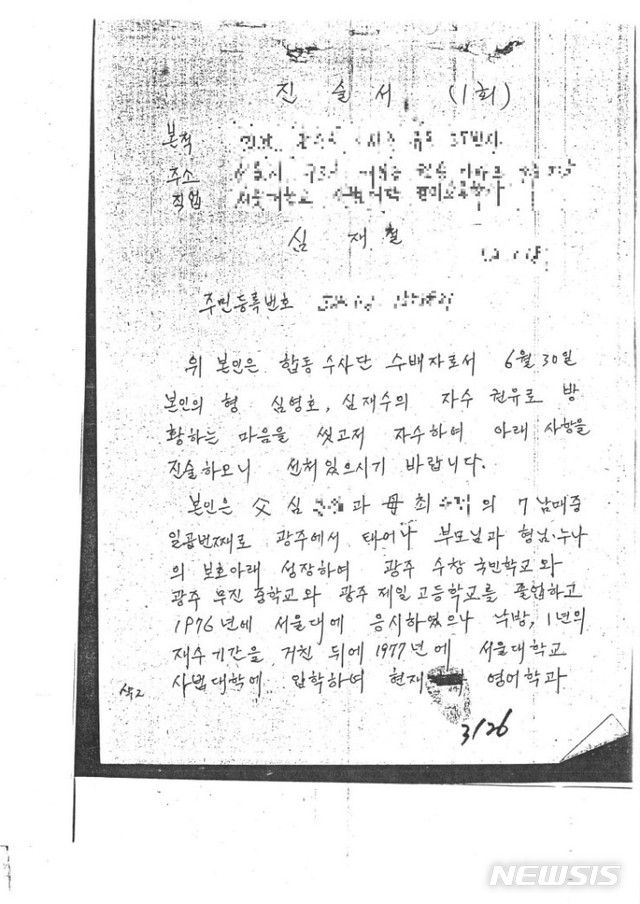 진 술 서 (1회)
본적
주소
직업
심 재 철
주민등록번호
위 본인은 합동수사단 수배자로서 6월 30일
본인의 형 심영호, 심재수의 자수 권유로 방
황하는 마음을 씻고저 자수하여 아래 사항을
진술하오니 선처있으시기 바랍니다.
본인은 父 심 과 母 최 의 7남매중
일곱번째로 광주에서 태어나 부모님과 형님·누나
의 보호아래 성장하여 광주 수창 국민학교와
광주 무진 중학교와 광주 제일 고등학교를 졸업하고
1976년에 서울대에 응시하였으나 낙방, 1년의
재수기간을 거친 뒤에 1977년에 서울대학교
사범대학에 입학하며 현재 영어학과
삭2
3126
NEWSIS